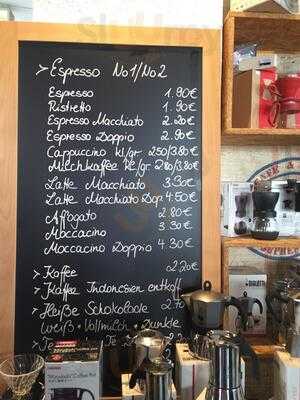 > Espresso No1/No2
Espresso 1.90€
Ristretto 1.90€
Espresso Macchiato 2.20€
Espresso Doppio 2.90€
Cappuccino kl/gr. 2.50/3.80€
Milchkaffee kl/gr. 2.80/3.80€
Latte Macchiato 3.30€
Latte Macchiato Dop. 4.50€
Affogato 2.80€
Moccacino 3.30€
Moccacino Doppio 4.30€
> Kaffee 2.20€
> Kaffee Indonesien entkoff.
> Heiße Schokolade 2.7
Weiß * Vollmilch * Dunkle
BIALETTI